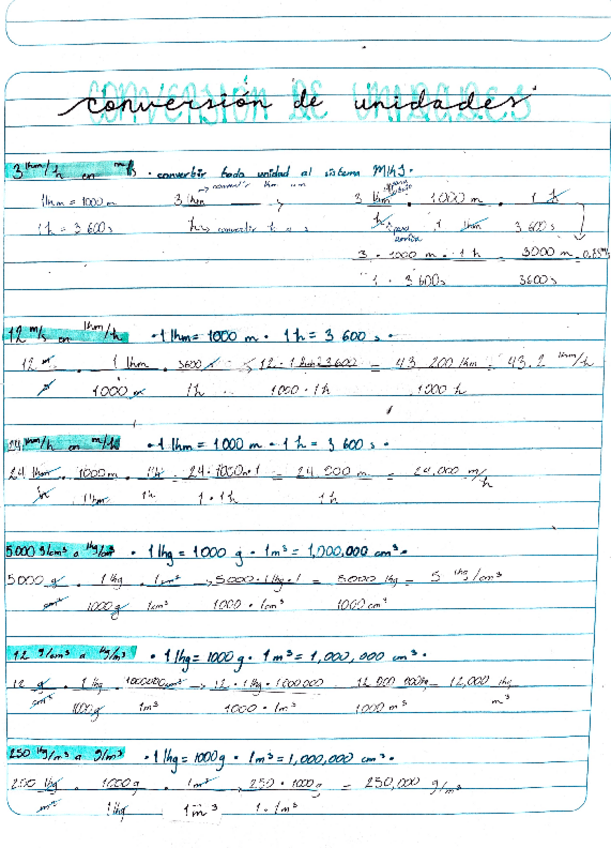 conversión de unidades
3 km/h en m/s · convertir toda unidad al sistema MKS.
→ convertir km a m
1 km = 1000 m 3 km → 3 km · 1000 m · 1 h
1 h = 3 600 s h → convertir h a s h 1 km 3 600 s
para arriba
3 · 1000 m · 1 h = 3000 m = 0.83
1 · 3 600s 3600s
12 m/s en km/h · 1 km = 1000 m · 1 h = 3 600 s ·
12 m · 1 km · 3600 s → 12 · 1 km · 3600 = 43 200 km = 43.2 km/h
s 1000 m 1h 1000 · 1h 1000 h
24 km/h en m/h · 1 km = 1000 m · 1 h = 3 600 s ·
24 km · 1000 m · 1h = 24 · 1000m · 1 = 24.000 m = 24,000 m/h
h 1 km 1h 1 · 1h 1h
5000 g/cm³ a kg/cm³ · 1 kg = 1000 g · 1 m³ = 1,000,000 cm³ ·
5000 g · 1 kg · 1cm³ → 5000 · 1 kg · 1 = 5000 kg = 5 kg/cm³
cm³ 1000g 1cm³ 1000 · 1cm³ 1000 cm³
12 g/cm³ a kg/m³ · 1 kg = 1000 g · 1 m³ = 1,000,000 cm³ ·
12 g · 1 kg · 1000000cm³ → 12 · 1 kg · 1000000 = 12 000 000kg = 12,000 kg
cm³ 1000g 1m³ 1000 · 1m³ 1000 m³ m³
250 kg/m³ a g/m³ · 1 kg = 1000 g · 1m³ = 1,000,000 cm³ ·
250 kg · 1000 g · 1m³ → 250 · 1000 g = 250,000 g/m³
m³ 1 kg 1m³ 1 · 1m³